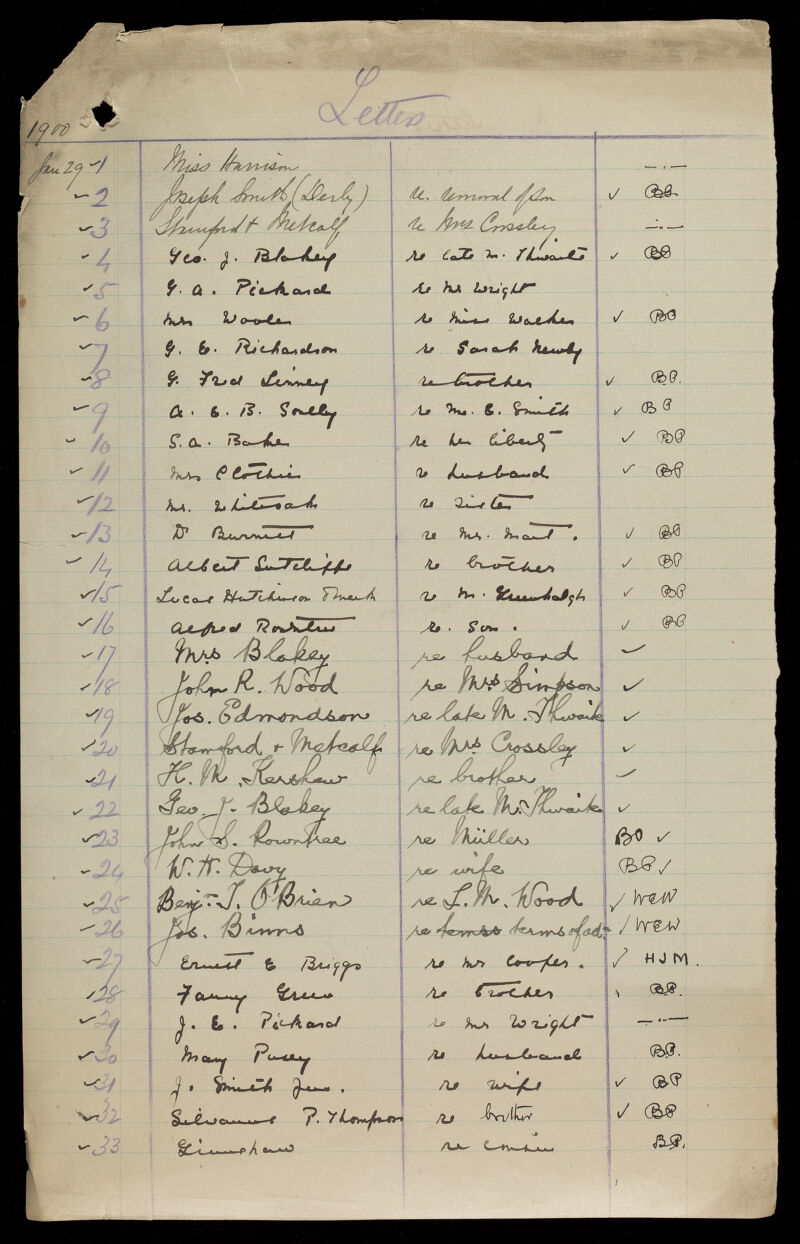 Letters
1900
Jan 29 ✓ 1 Miss Harrison —·—
✓ 2 Joseph Smith (Derby) re. removal of son ✓ BP
✓ 3 Stamford & Metcalf re Mrs Crossley —·—
✓ 4 Geo. J. Blakey re late M. Thwaite ✓ BP
✓ 5 G. A. Pickard re Mr Wright
✓ 6 Mrs Wooler re Miss Walker ✓ BP
✓ 7 G. E. Richardson re Sarah Newby
✓ 8 G. Fred Linney re brother ✓ BP.
✓ 9 A. E. B. Soulby re M. E. Smith ✓ BP
✓ 10 S. A. Baker re her liberty ✓ BP
✓ 11 Mrs Clothier re husband ✓ BP
✓ 12 Mr. Whitesah re sister
✓ 13 Dr Burnett re Mr. Mart. ✓ BP
✓ 14 Albert Sutcliffe re brother ✓ BP
✓ 15 Lucas Hutchinson & Meek re M. Greenhalgh ✓ BP
✓ 16 Alfred Rowntree re. Son. ✓ BP
✓ 17 Mrs Blakey re husband ✓
✓ 18 John R. Wood re Mrs Simpson ✓
✓ 19 Jos. Edmondson re late M. Thwaite ✓
✓ 20 Stamford & Metcalfe re Mrs Crossley ✓
✓ 21 H. M. Kershaw re brother ✓
✓ 22 Geo. J. Blakey re late M. Thwaite ✓
✓ 23 John S. Rowntree re Müller BP ✓
✓ 24 W. H. Davy re wife BP ✓
✓ 25 Benj. T. O'Brien re L. M. Wood ✓ WCW
✓ 26 Jos. Binns re terms terms of ad- ✓ WCW
✓ 27 Ernest E Briggs re Mr Cooper. ✓ HJM.
✓ 28 Fanny Green re brother BP.
✓ 29 J. E. Pickard re Mr Wright —·—
✓ 30 Mary Pusey re husband BP.
✓ 31 J. Smith Jun. re wife ✓ BP
✓ 32 Silvanus P. Thompson re brother ✓ BP
✓ 33 Grimshaw re cousin BP.